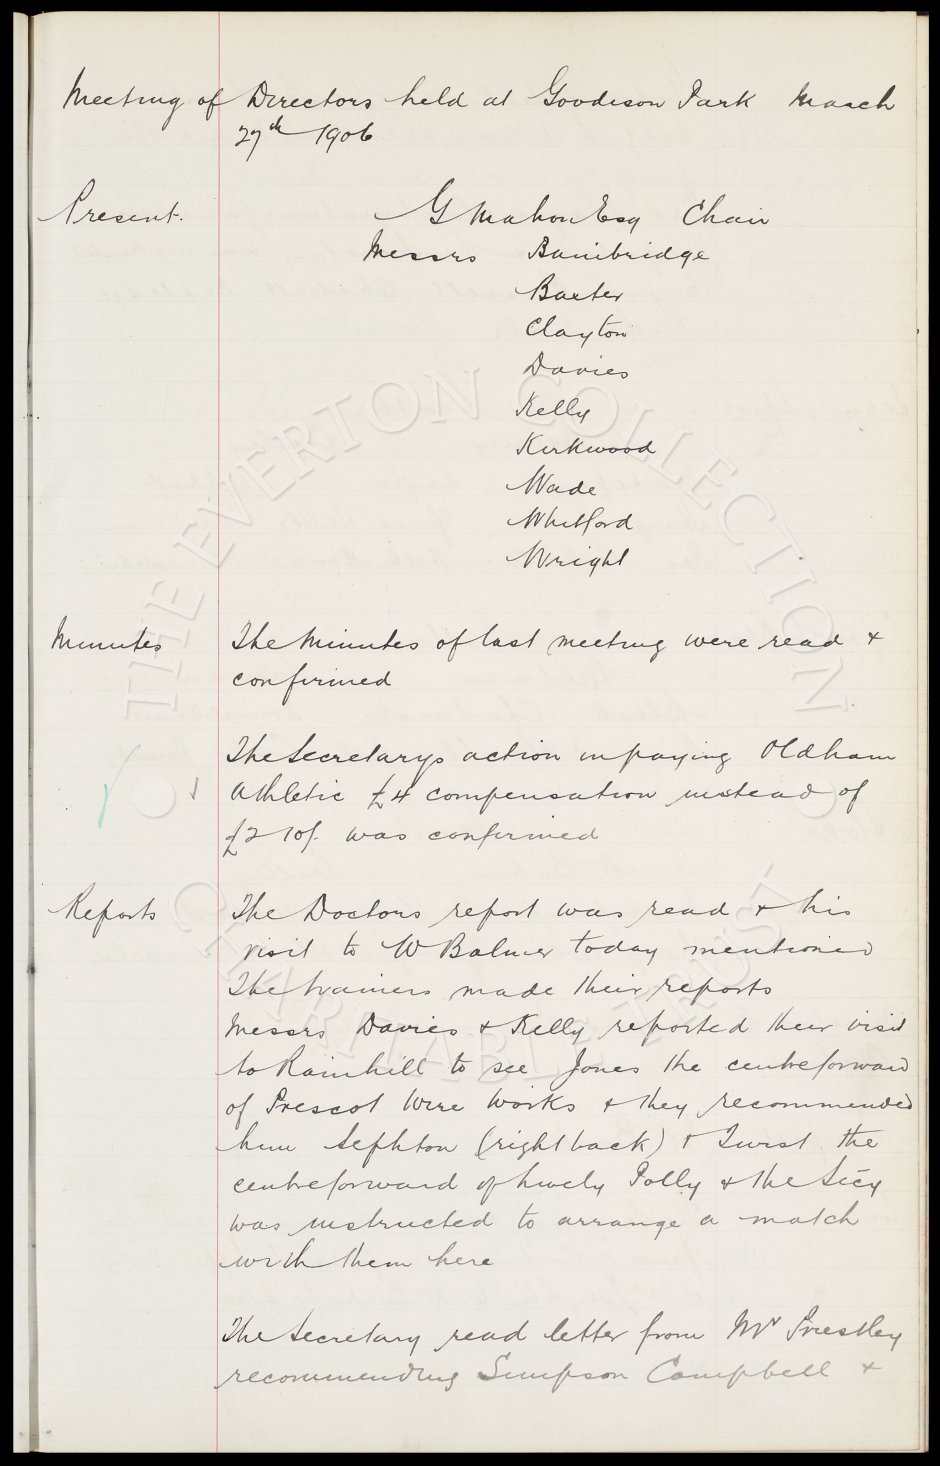 Meeting of Directors held at Goodison Park March
27th 1906
Present. G Mahon Esq Chair
Messrs Bainbridge
Baxter
Clayton
Davies
Kelly
Kirkwood
Wade
Whitford
Wright
Minutes The Minutes of last meeting were read &
confirmed
The Secretarys action in paying Oldham
Athletic £4 compensation instead of
£2 10/- was confirmed
Reports The Doctors report was read & his
visit to W Balmer today mentioned
The trainers made their reports
Messrs Davies & Kelly reported their visit
to Rainhill to see Jones the centreforward
of Prescot Wire Works & they recommended
him Sephton (right back) & Twist the
centreforward of Lively Polly & the Secy
was instructed to arrange a match
with them here
The Secretary read letter from Mr Priestley
recommending Simpson Campbell &
© THE EVERTON COLLECTION
CHARITABLE TRUST